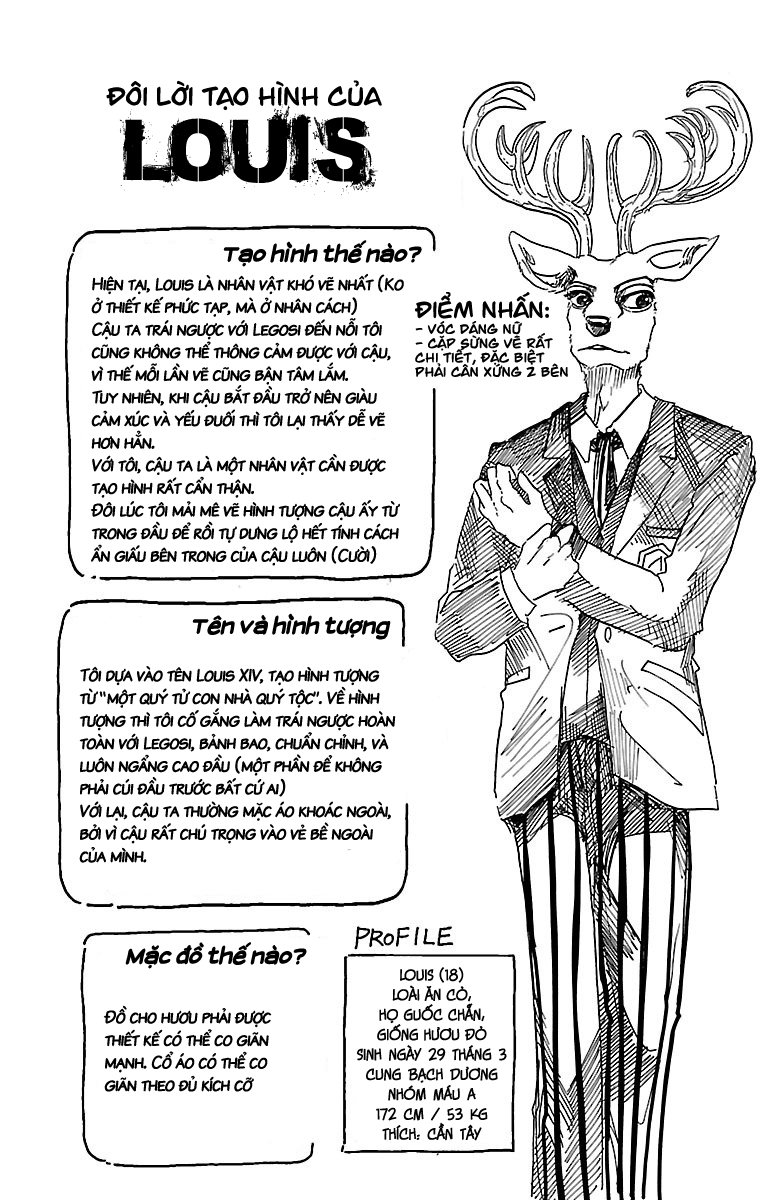 ĐÔI LỜI TẠO HÌNH CỦA
LOUIS
Tạo hình thế nào?
HIỆN TẠI, LOUIS LÀ NHÂN VẬT KHÓ VẼ NHẤT (KO
Ở THIẾT KẾ PHỨC TẠP, MÀ Ở NHÂN CÁCH)
CẬU TA TRÁI NGƯỢC VỚI LEGOSI ĐẾN NỖI TÔI
CŨNG KHÔNG THỂ THÔNG CẢM ĐƯỢC VỚI CẬU,
VÌ THẾ MỖI LẦN VẼ CŨNG BẬN TÂM LẮM.
TUY NHIÊN, KHI CẬU BẮT ĐẦU TRỞ NÊN GIÀU
CẢM XÚC VÀ YẾU ĐUỐI THÌ TÔI LẠI THẤY DỄ VẼ
HƠN HẲN.
VỚI TÔI, CẬU TA LÀ MỘT NHÂN VẬT CẦN ĐƯỢC
TẠO HÌNH RẤT CẨN THẬN.
ĐÔI LÚC TÔI MẢI MÊ VẼ HÌNH TƯỢNG CẬU ẤY TỪ
TRONG ĐẦU ĐỂ RỒI TỰ DƯNG LỘ HẾT TÍNH CÁCH
ẨN GIẤU BÊN TRONG CỦA CẬU LUÔN (CƯỜI)
ĐIỂM NHẤN:
- VÓC DÁNG NỮ
- CẶP SỪNG VẼ RẤT
CHI TIẾT, ĐẶC BIỆT
PHẢI CÂN XỨNG 2 BÊN
Tên và hình tượng
TÔI DỰA VÀO TÊN LOUIS XIV, TẠO HÌNH TƯỢNG
TỪ "MỘT QUÝ TỬ CON NHÀ QUÝ TỘC". VỀ HÌNH
TƯỢNG THÌ TÔI CỐ GẮNG LÀM TRÁI NGƯỢC HOÀN
TOÀN VỚI LEGOSI, BẢNH BAO, CHUẨN CHỈNH, VÀ
LUÔN NGẨNG CAO ĐẦU (MỘT PHẦN ĐỂ KHÔNG
PHẢI CÚI ĐẦU TRƯỚC BẤT CỨ AI)
VỚI LẠI, CẬU TA THƯỜNG MẶC ÁO KHOÁC NGOÀI,
BỞI VÌ CẬU RẤT CHÚ TRỌNG VÀO VẺ BỀ NGOÀI
CỦA MÌNH.
Mặc đồ thế nào?
ĐỒ CHO HƯƠU PHẢI ĐƯỢC
THIẾT KẾ CÓ THỂ CO GIÃN
MẠNH. CỔ ÁO CÓ THỂ CO
GIÃN THEO ĐỦ KÍCH CỠ
PROFILE
LOUIS (18)
LOÀI ĂN CỎ,
HỌ GUỐC CHẴN,
GIỐNG HƯƠU ĐỎ
SINH NGÀY 29 THÁNG 3
CUNG BẠCH DƯƠNG
NHÓM MÁU A
172 CM / 53 KG
THÍCH: CẦN TÂY